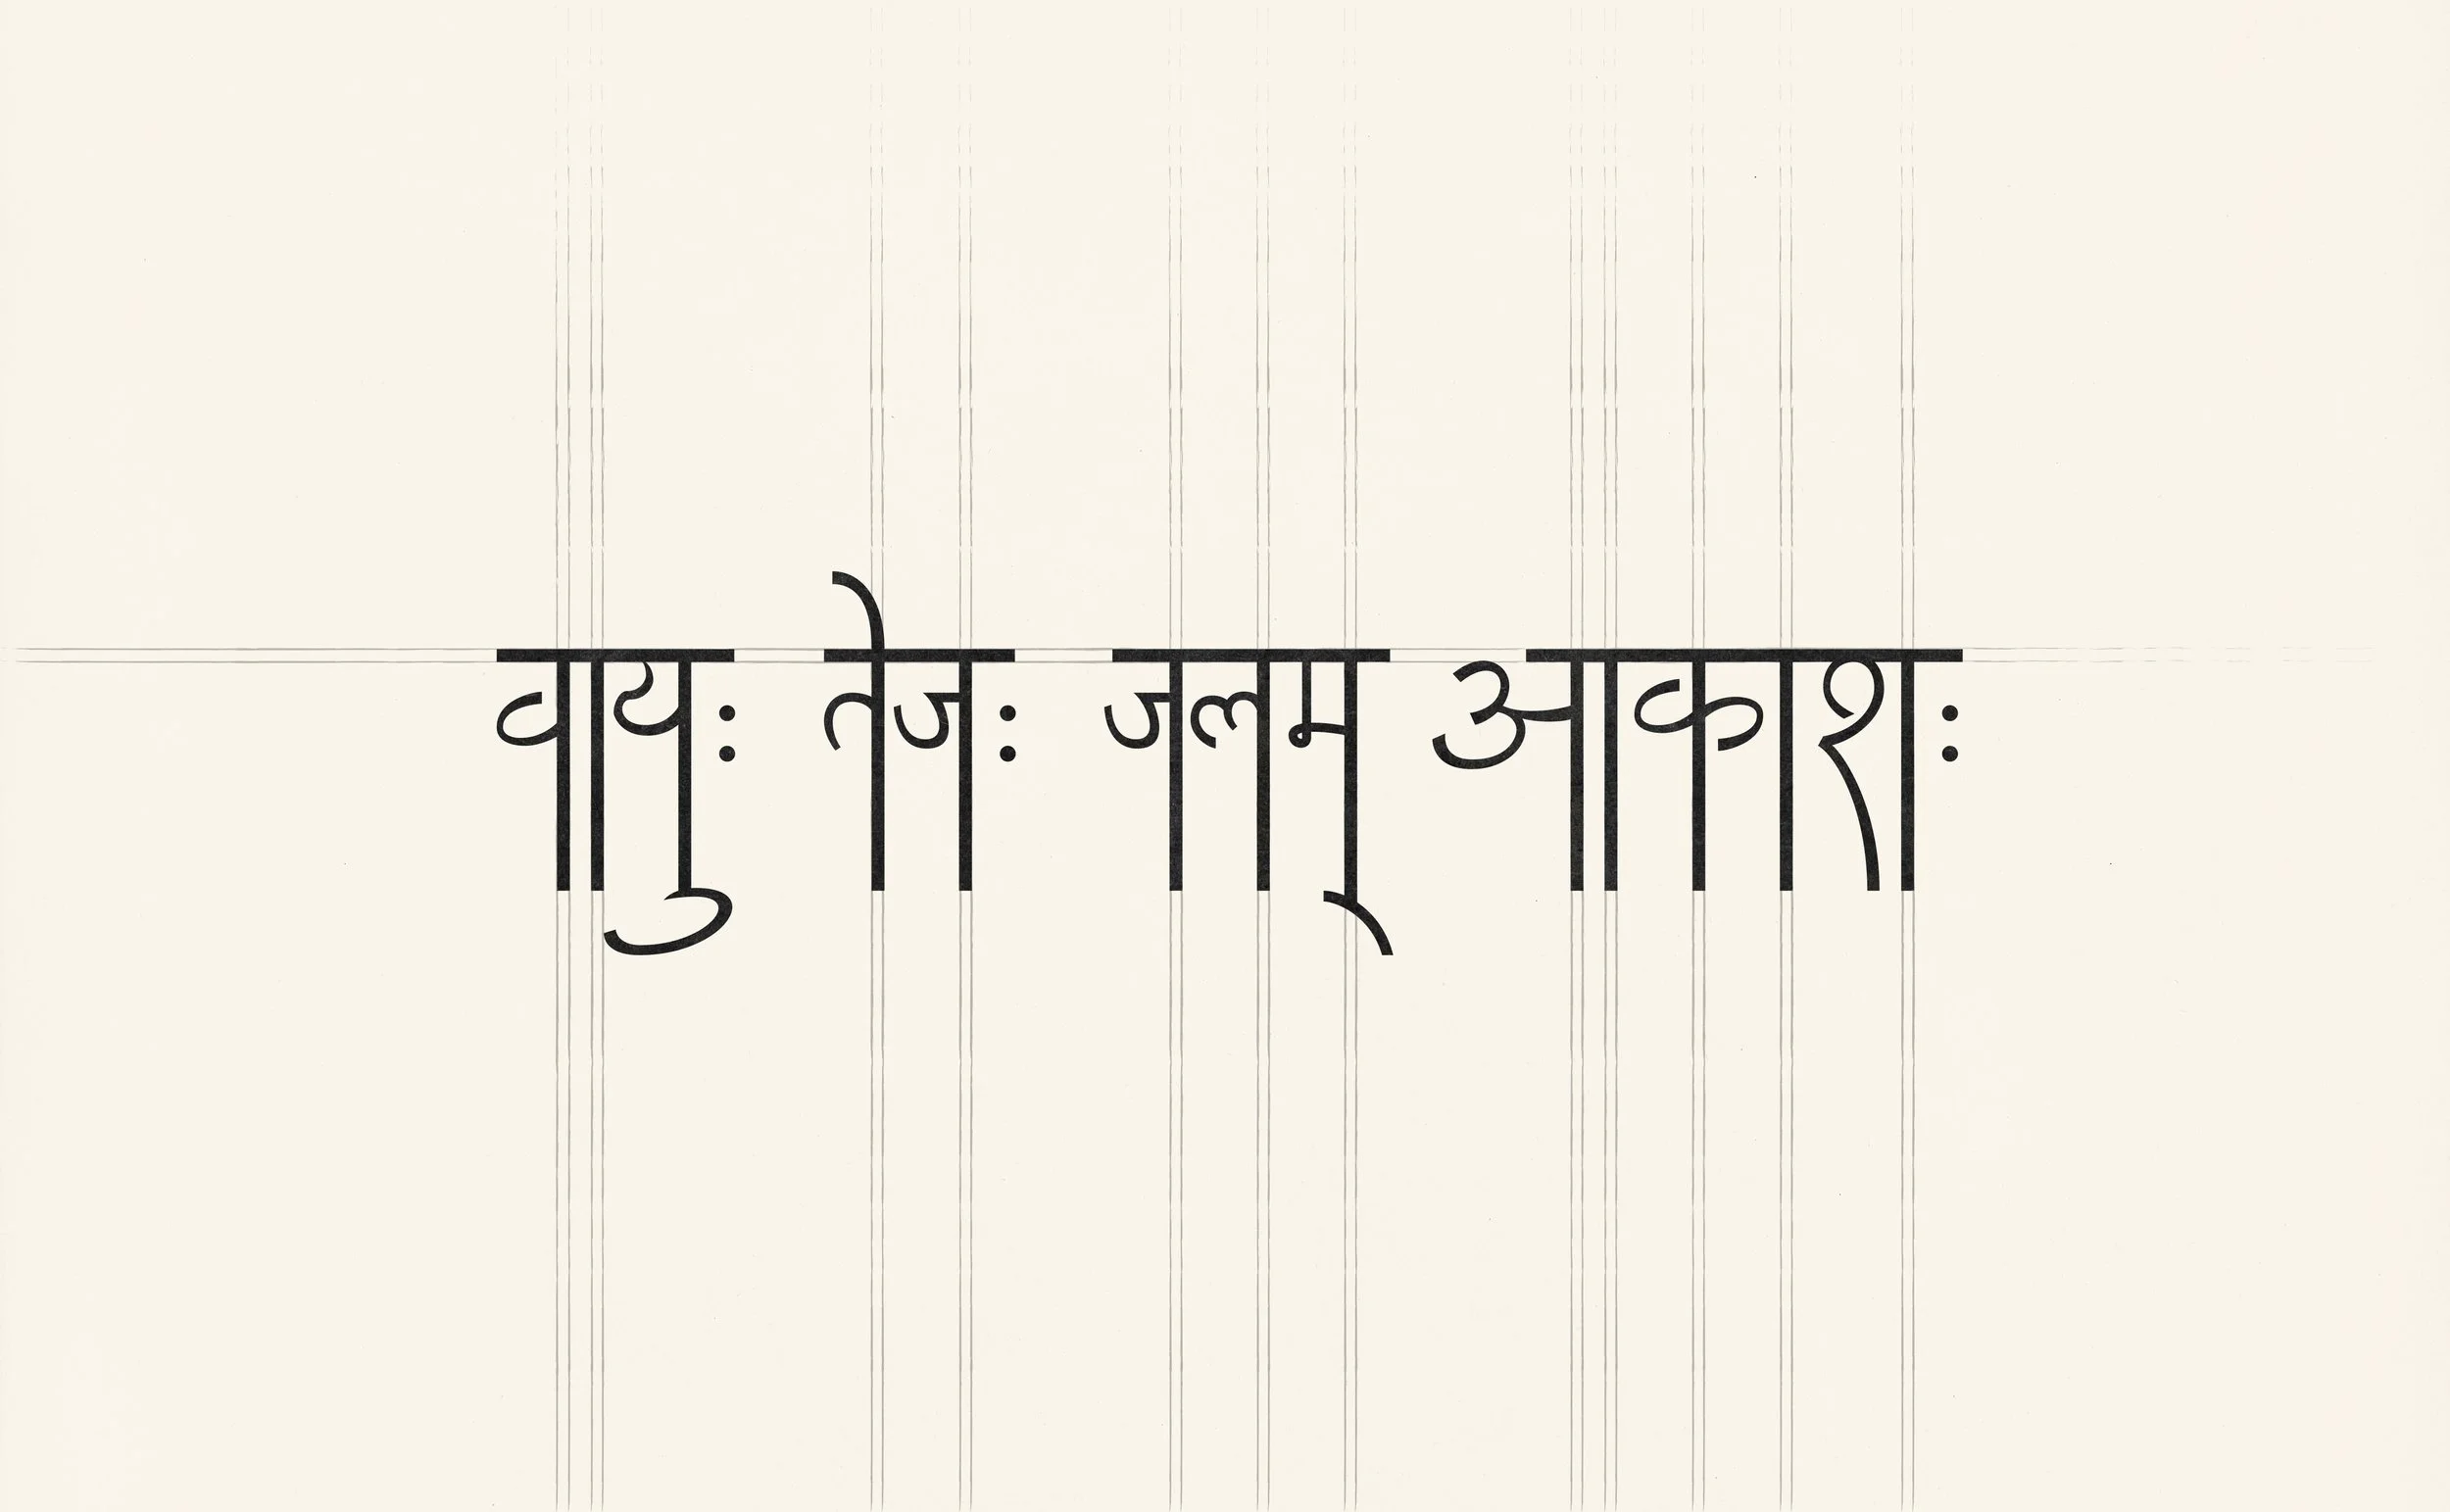 वायुः तेजः जलम् आकाशः